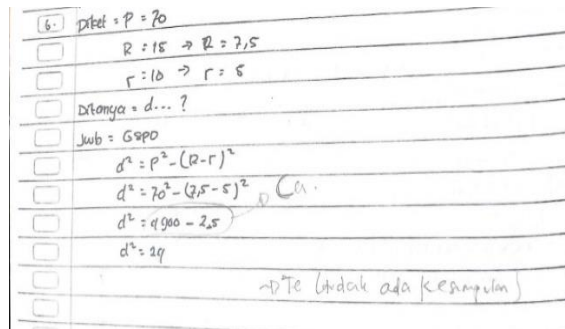 6. Diket = P = 70
R = 15 → R = 7,5
r = 10 → r = 5
Ditanya = d... ?
Jwb = GSPD
d² = P² - (R-r)²
d² = 70² - (7,5 - 5)² Ca.
d² = 4900 - 2,5
d² = 29
→ Te (tidak ada kesimpulan)